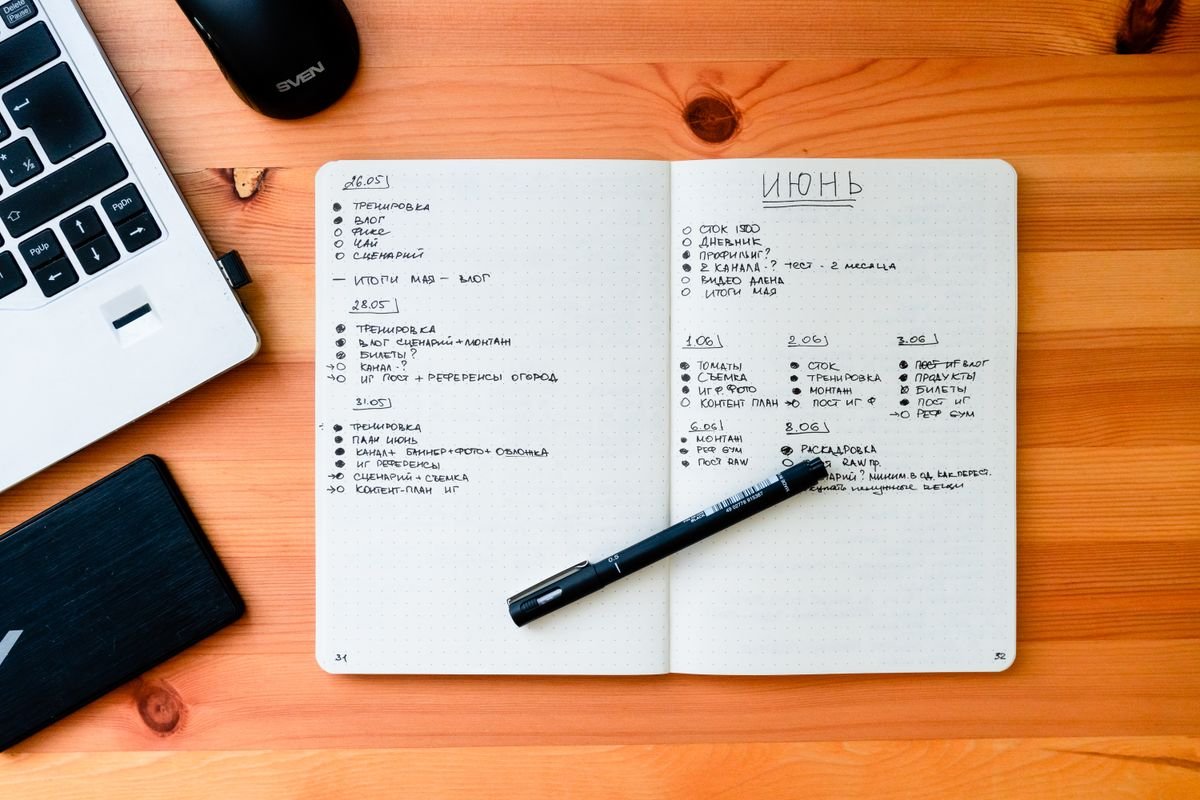 Delete
Pause
½
PgUp
PgDn
SVEN
26.05
ТРЕНИРОВКА
ВЛОГ
ФИКС
ЧАЙ
СЦЕНАРИЙ
— ИТОГИ МАЯ — ВЛОГ
28.05
ТРЕНИРОВКА
ВЛОГ СЦЕНАРИЙ + МОНТАЖ
БИЛЕТЫ?
КАНАЛ - ?
ИГ ПОСТ + РЕФЕРЕНСЫ ОГОРОД
31.05
ТРЕНИРОВКА
ПЛАН ИЮНЬ
КАНАЛ + БАННЕР + ФОТО + ОБЛОЖКА
ИГ РЕФЕРЕНСЫ
СЦЕНАРИЙ + СЪЕМКА
КОНТЕНТ-ПЛАН ИГ
31
ИЮНЬ
СТОК 1500
ДНЕВНИК
ПРОФИЛИГ?
2 КАНАЛА - ? ТЕСТ - 2 месяца
ВИДЕО АЛЕНА
ИТОГИ МАЯ
1.06
ТОМАТЫ
СЪЕМКА
ИГ Ф. ФОТО
КОНТЕНТ ПЛАН
2.06
СТОК
ТРЕНИРОВКА
МОНТАЖ
ПОСТ ИГ Ф
3.06
ПОСТ ИГ ВЛОГ
ПРОДУКТЫ
БИЛЕТЫ
ПОСТ ИГ
РЕФ GYM
6.06
МОНТАЖ
РЕФ GYM
ПОСТ RAW
8.06
РАСКАДРОВКА
RAW пр.
МИНИМ. В ОД. КАК ПЕРЕСТ.
ненужные вещи
0.5
BLACK
49 02778 915367
32